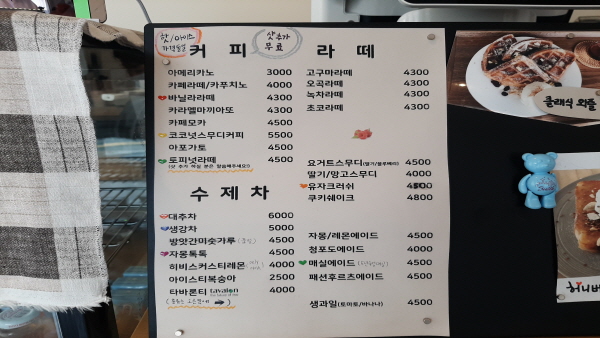 핫/아이스
가격동일
샷추가
무료
커피
아메리카노 3000
카페라떼/카푸치노 4000
바닐라라떼 4300
카라멜마끼아또 4300
카페모카 4500
코코넛스무디커피 5500
아포가토 4500
토피넛라떼 4500
라떼
고구마라떼 4300
오곡라떼 4300
녹차라떼 4300
초코라떼 4300
요거트스무디(딸기/블루베리) 4500
딸기/망고스무디 4000
유자크러쉬
쿠키쉐이크 4800
수제차
대추차 6000
생강차 5000
방앗간미숫가루 4500
자몽톡톡 4500
히비스커스티레몬 4000
아이스티복숭아 2500
타바론티 tavalon 4000
자몽/레몬에이드 4500
청포도에이드 4000
매실에이드 4500
패션후르츠에이드 4500
생과일(토마토/바나나) 4500
클래식 와플